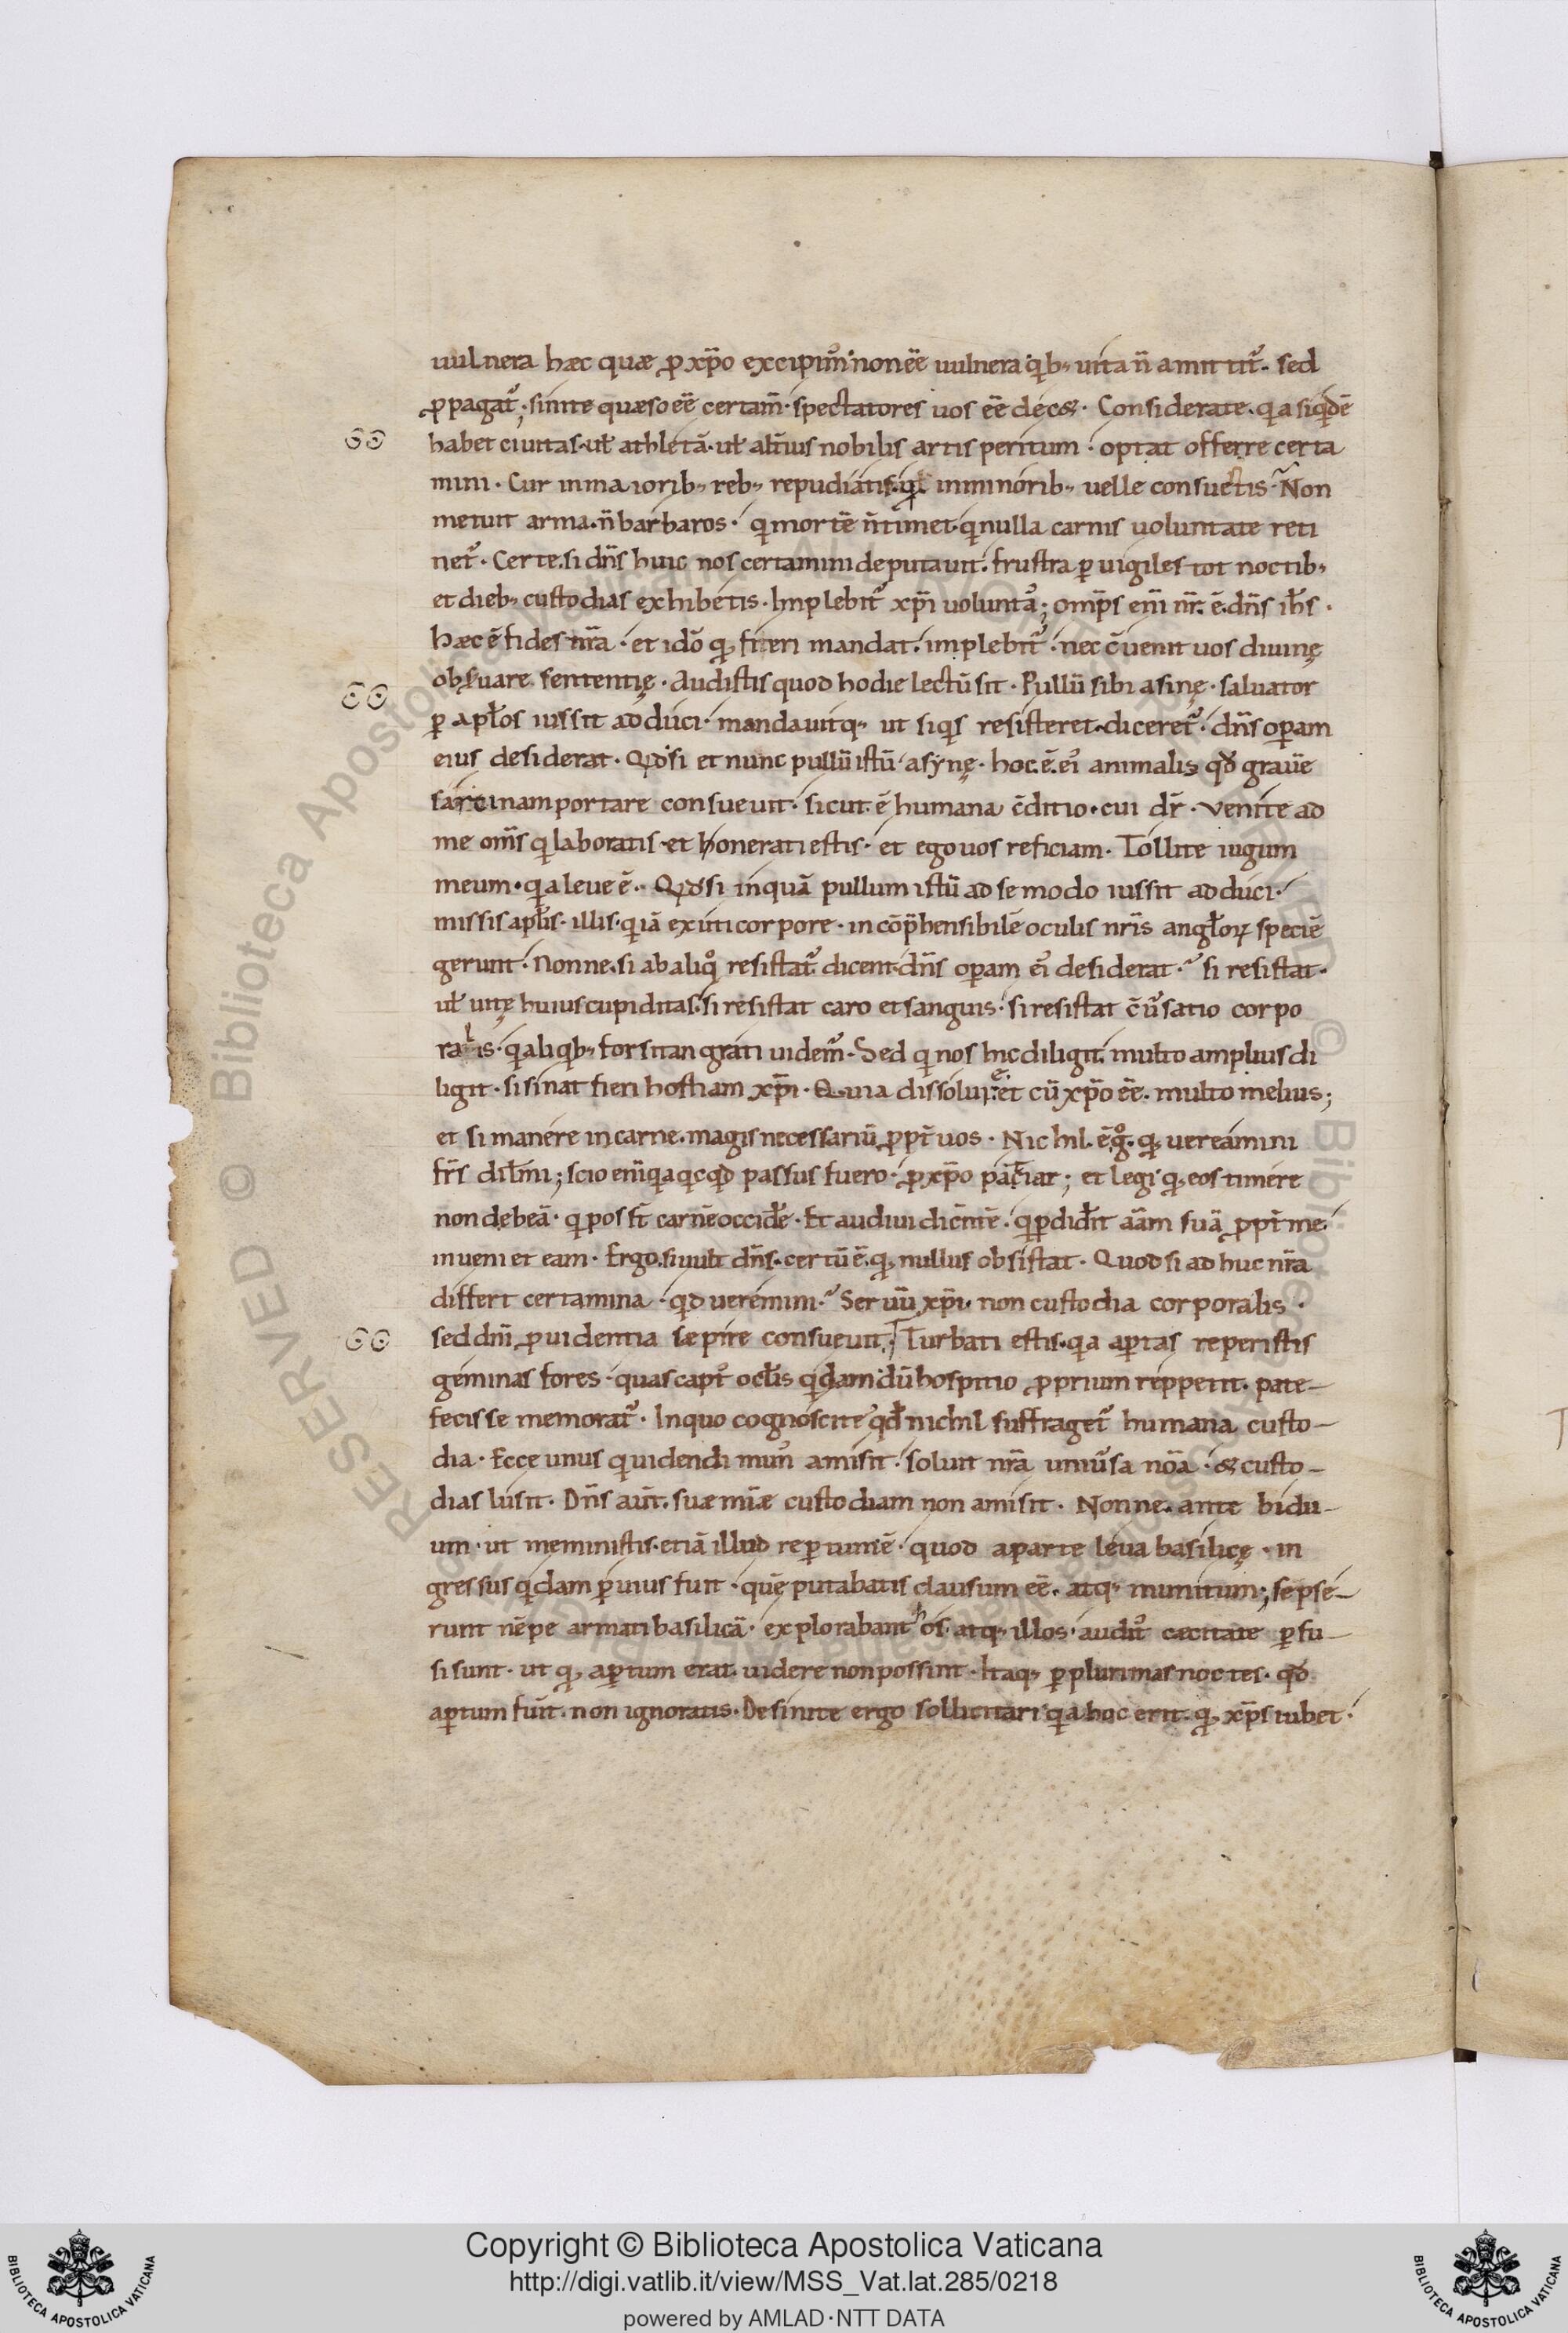 uulnera hæc quæ ꝓ xp̄o excipim᷒ non eē̄ uulnera qib; uita n̄ amittit᷑. sed
ꝓpagat᷑; sinite quæso eē̄ certam̄. spectatores uos eē̄ dec&. Considerate. qa siqͥdē
habet ciuitas. ut̄ athletā. ut̄ alt̄ius nobilis artis peritum. optat offerre certa
mini. Cur in maiorib; reb; repudiatis. qd̄ in minorib; uelle consuetis. Non
metuit arma. n̄ barbaros. qi mortē n̄ timet. qi nulla carnis uoluntate reti
net᷑. Certe. si dn̄s huic nos certamini deputauit. frustra ꝑuigiles tot noctib;
et dieb; custodias exhibetis. Implebit᷑ xp̄i uolunta᷒; omp̄s eni̅ nr̄. ē. dn̄s ih̄s.
Hæc ē fides nr̄a. et idō qꝫ fieri mandat. implebit᷑. nec c̄uenit uos diuinę
obs̄uare sententię. Audistis quod hodie lectū sit. Pullū sibi asinę. saluator
ꝑ aplōs iussit adduci. mandauitq; ut siqis resisteret. diceret᷑. dn̄s oꝑam
eius desiderat. Qd̄ si et nunc pullū istū asynę. hoc. ē. ei᷒ animalis qd̄ grauē
sarcinam portare consueuit. sicut ē humana c̄ditio. cui dr̄. Venite ad
me om̄s qi laboratis. et honerati estis. et ego uos reficiam. Tollite iugum
meum. qa leue ē. Qd̄ si inquā pullum istū ad se modo iussit adduci.
missis aplīs. illis. qi iā exuti corpore. incōp̄hensibilē oculis nr̄is angloꝝ speciē
gerunt. Nonne. si ab aliqͦ resistat᷑ dicent. dn̄s oꝑam ei᷒ desiderat. si resistat.
ut̄ uitę huius cupiditas. si resistat caro et sanguis. si resistat c̄ūsatio corpo
ralis. qi aliqib; forsitan grati uidem᷒. Sed qi nos hic diligit. multo amplius di
ligit. si sinat fieri hostiam xp̄i. Quia dissolui. et cū xp̄o eē̄. multo melius;
et si manere in carne. magis necessariū ꝓpt̄ uos. Nichil. ē gͦ. qꝫ uereamini
fr̄s dil̄mi; scio eni̅ qa qicqid passus fuero. ꝓ xp̄o patiar; et legi qꝫ eos timere
non debeā. qi poss̄t carnē occidēe. Et audiui dicentē. qi ꝑdidīt aām suā ꝓpt̄ me
inueniet eam. Ergo. si uult dn̄s. certū ē. qꝫ nullus obsistat. Quod si adhuc nr̄a
differt certamina. qd ueremini. Seruū xp̄i. non custodia corporalis.
sed dn̄i ꝓuidentia sæpire consueuit; Turbati estis. qa aꝑtas reperistis
geminas fores. quas capt᷒ oclis qidam dū hospitio ꝓprium reppetit. pate-
fecisse memorat᷑. In quo cognoscite qd̄ nichil suffraget᷑ humana custo-
dia. Ecce unus qi uidendi mun᷒ amisit. soluit nr̄a uniūsa nōa. & custo-
dias lusit. Dn̄s aut̄. suæ mīæ custodiam non amisit. Nonne. ante bidu-
um. ut meministis. etiā illud reꝑtum ē. quod a parte leua basilicę. in
gressus qidam ꝑuius fuit. quē putabatis clausum eē̄. atq; munitum; sepse-
runt nēpe armati basilicā. explorabant hos. atq; illos. audit᷒ cæcitate ꝑfu-
si sunt. ut qꝫ aꝑtum erat. uidere non possint. Itaq; ꝑ plurimas noctes. qd̄
aꝑtum fuit. non ignoratis. Desinite ergo sollicitari qa hoc erit. qꝫ xp̄s iubet.
Copyright © Biblioteca Apostolica Vaticana
http://digi.vatlib.it/view/MSS_Vat.lat.285/0218
powered by AMLAD·NTT DATA